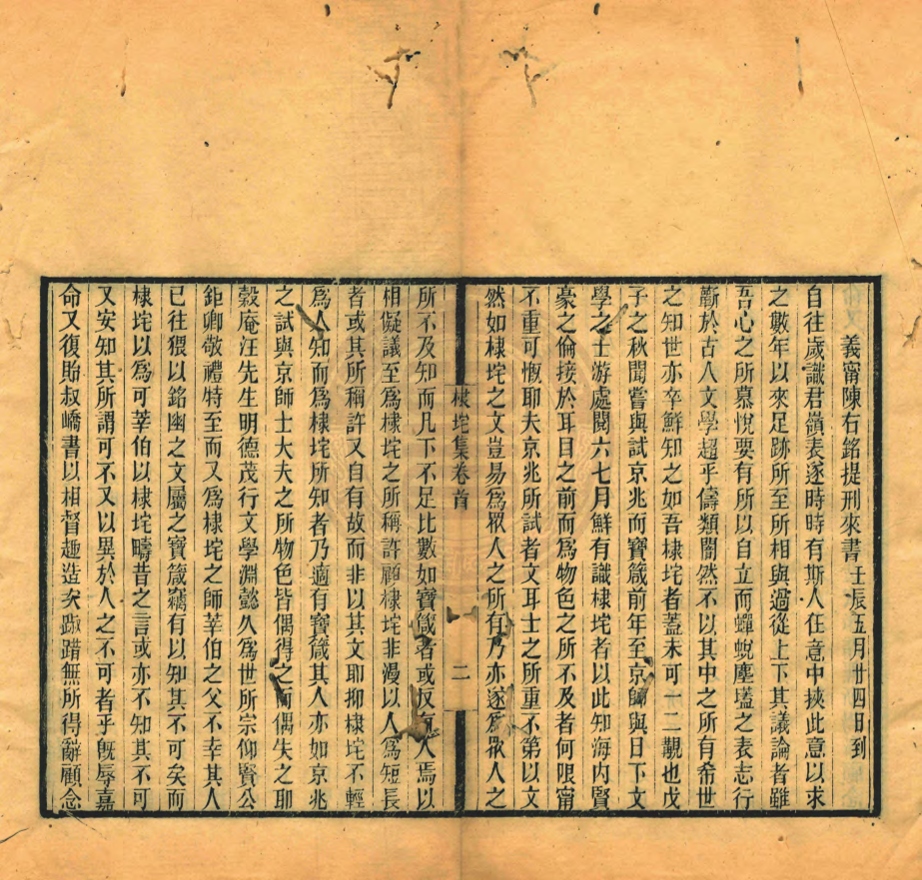 義甯陳右銘提刑來書壬辰五月廿四日到
自往歲識君嶺表遂時時有斯人在意中挾此意以求
之數年以來足跡所至所相與過從上下其議論者雖
吾心之所慕悅要有所以自立而蟬蛻塵壒之表志行
嶄於古人文學超乎儔類闇然不以其中之所有希世
之知世亦卒鮮知之如吾棣垞者蓋未可一二覯也戊
子之秋聞嘗與試京兆而寶箴前年至京師與日下文
學之士游處閱六七月鮮有識棣垞者以此知海內賢
豪之倫接於耳目之前而爲物色之所不及者何限甯
不重可慨耶夫京兆所試者文耳士之所重不第以文
然如棣垞之文豈易爲衆人之所有乃亦遂爲衆人之
棣垞集卷首
二
所不及知而凡下不足比數如寶箴者或反有人焉以
相儗議至爲棣垞之所稱許顧棣垞非漫以人爲短長
者或其所稱許又自有故而非以其文耶抑棣垞不輕
爲人知而爲棣垞所知者乃適有寶箴其人亦如京兆
之試與京師士大夫之所物色皆偶得之而偶失之耶
穀庵汪先生明德茂行文學淵懿久爲世所宗仰賢公
鉅卿敬禮特至而又爲棣垞之師莘伯之父不幸其人
已往猥以銘幽之文屬之寶箴竊有以知其不可矣而
棣垞以爲可莘伯以棣垞疇昔之言或亦不知其不可
又安知其所謂可不又以異於人之不可者乎旣辱嘉
命又復貽叔嶠書以相督趣造次踧踖無所得辭顧念